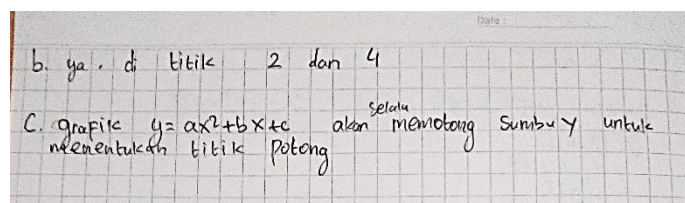 Date :
b. ya. di titik 2 dan 4
selalu
C. grafik y = ax²+bx+c akan memotong sumbu y untuk
menentukan titik potong